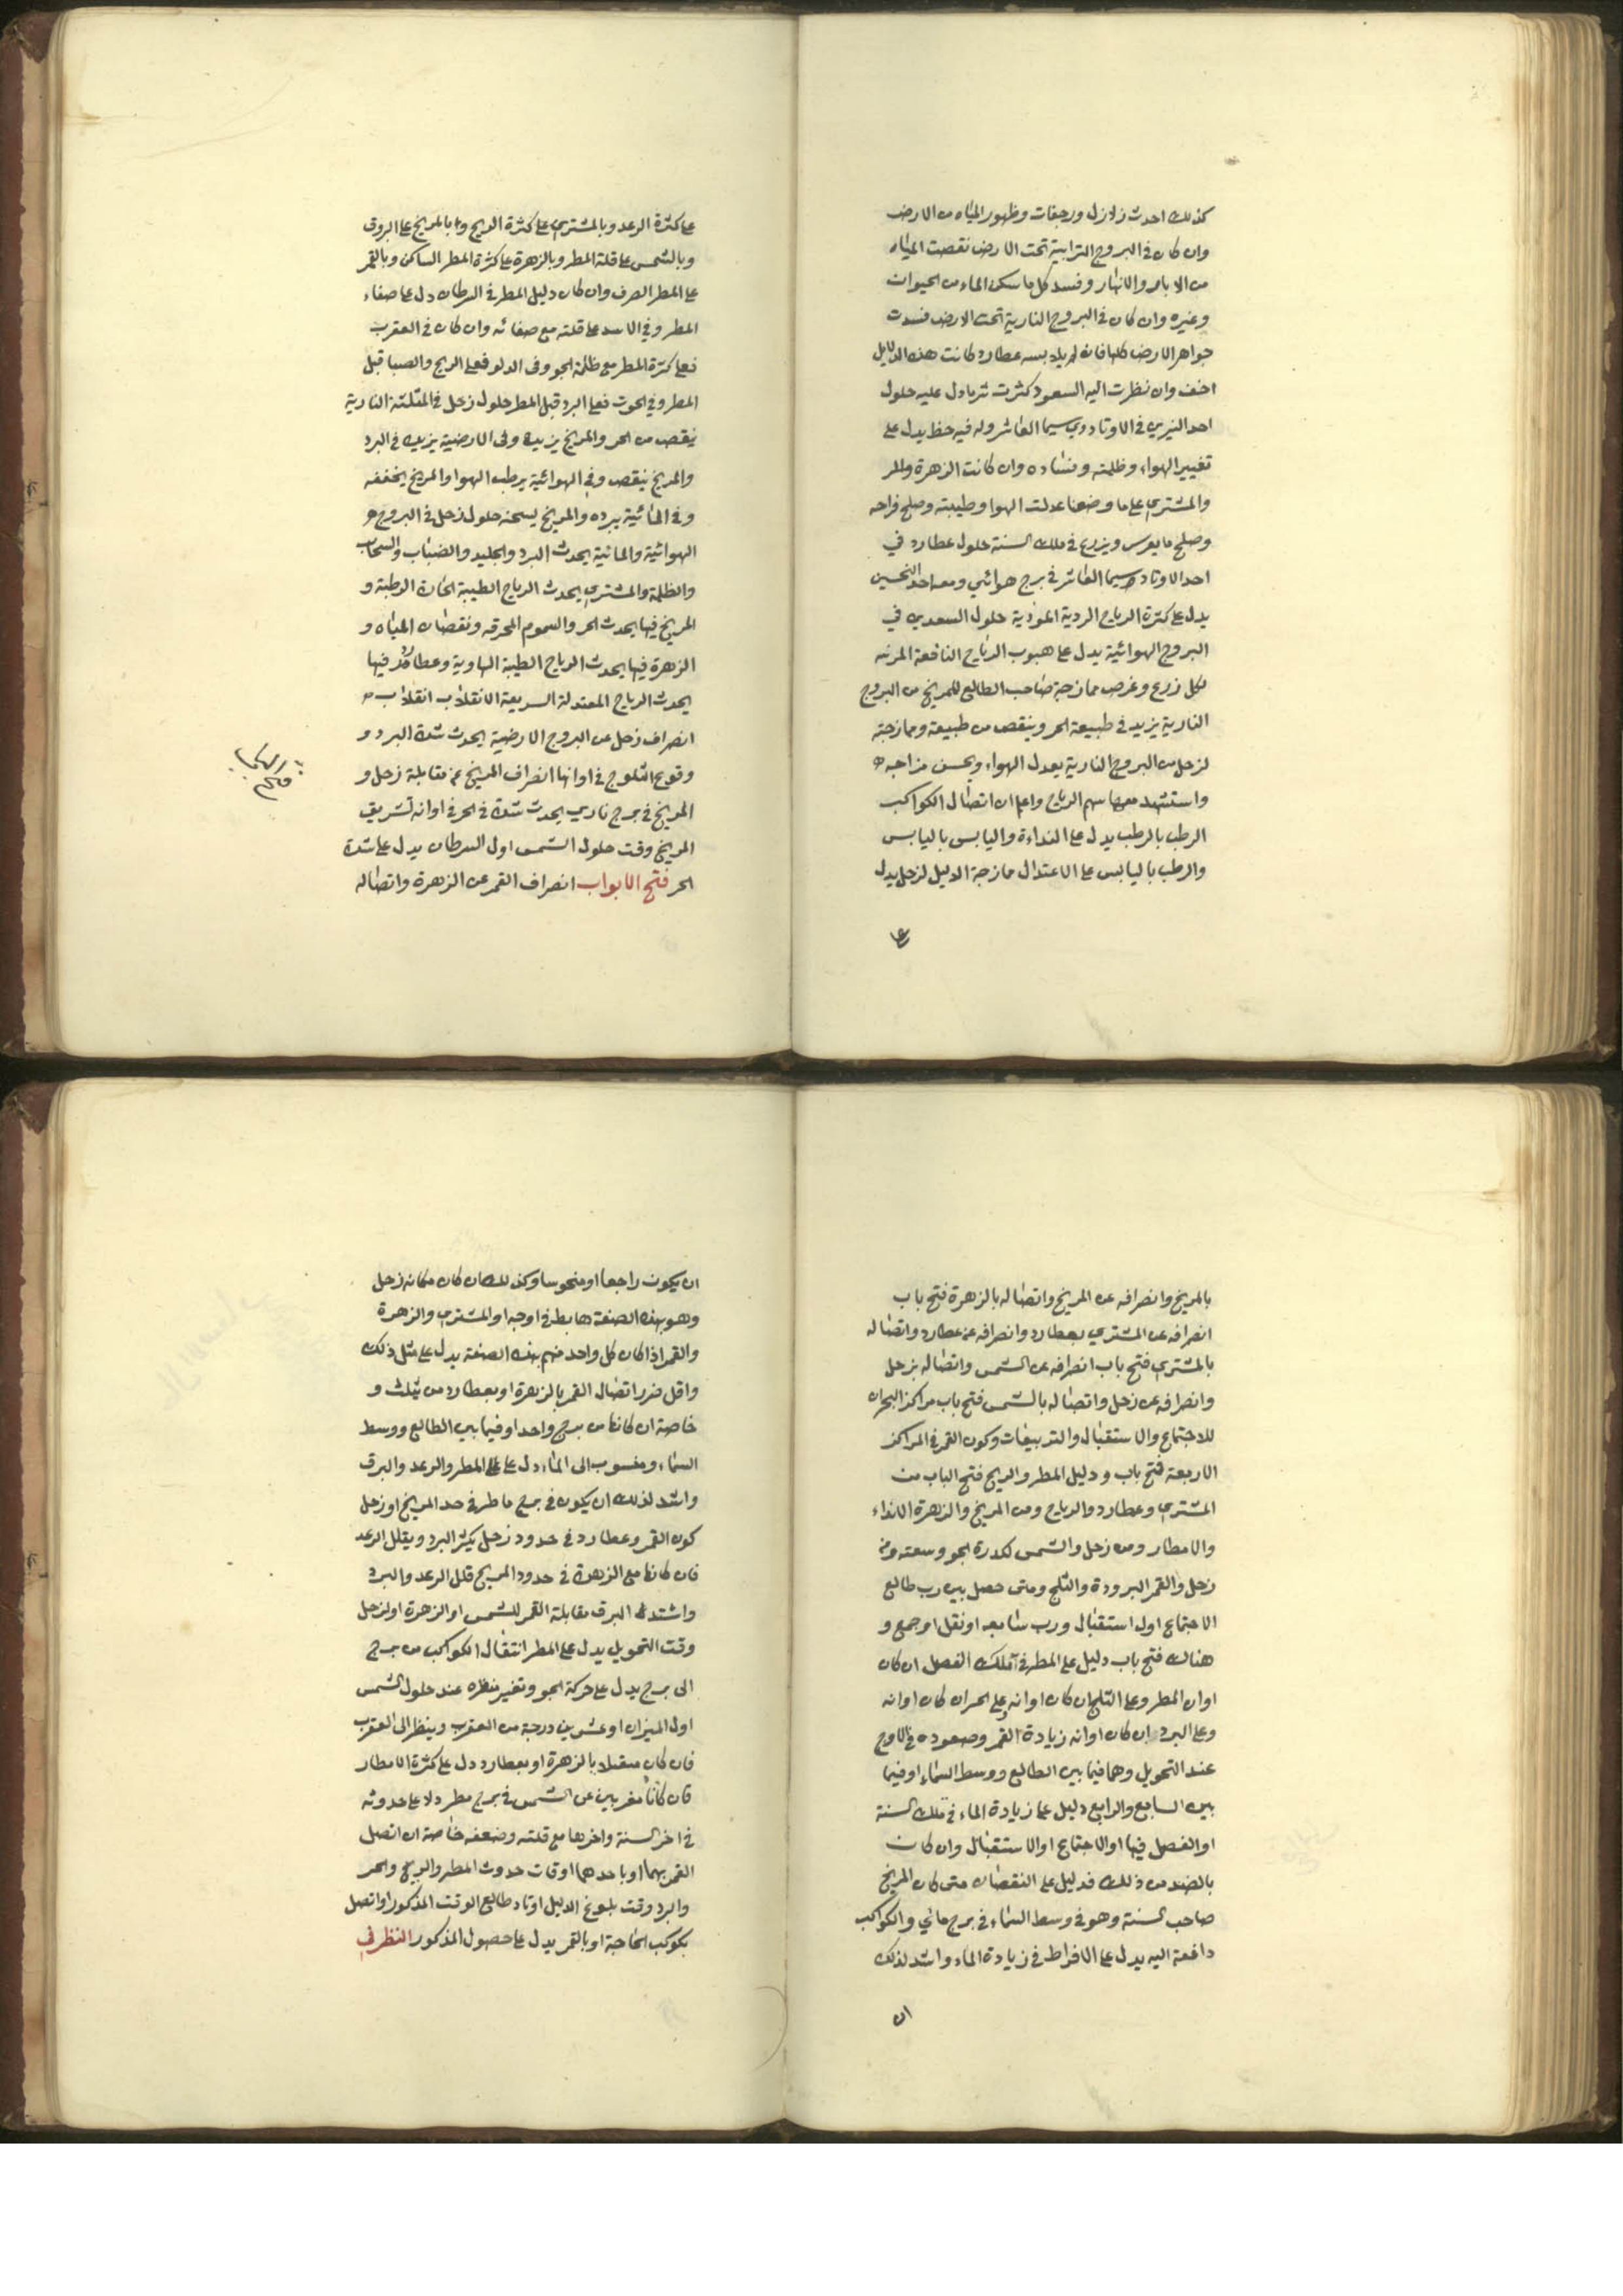 كذلك احدث زلازل ورجفات وظهور المياه من الارض
وان كان في البروج الترابية تحت الارض نقصت المياه
من الابار والانهار وفسد كل ما سكن الماء من الحيوان
وغيره وان كان في البروج النارية تحت الارض فسدت
جواهر الارض كلها فانه لم يلابسه عطارد كانت هذه الدلايل
اخف وان نظرت اليه السعود كثرت ثم ما دل عليه حلول
احد النيرين في الاوتاد وسيما العاشر وله فيه حظ يدل على
تغيير الهواء وظلمته وفساده وان كانت الزهرة والمر
والمشتري على ما وصفنا عدلت الهوا وطيبته وصلح مزاجه
وصلح ما يغرس ويزرع في تلك السنة حلول عطارد في
احد الاوتاد وسيما العاشر في برج هوائي ومعه احد النحسين
يدل على كثرة الرياح الردية الموذية حلول السعدين في
البروج الهوائية يدل على هبوب الرياح النافعة المربية
لكل زرع وغرس ممازجة صاحب الطالع للمريخ من البروج
النارية يزيد في طبيعة الحر وينقص من طبيعة وممازجته
لزحل من البروج النارية يعدل الهواء ويحسن مزاجه
واستشهد معها سهم الرياح واعلم ان اتصال الكواكب
الرطب بالرطب يدل على النداءة واليابس باليابس
والرطب باليابس على الاعتدال ممازجة الدليل لزحل يدل
على
على كثرة الرعد وبالمشتري على كثرة الريح وبالمريخ على البروق
وبالشمس على قلة المطر وبالزهرة على كثرة المطر الساكن وبالقمر
على المطر الصرف وان كان دليل المطر في السرطان دل على صفاء
المطر وفي الاسد على قلته مع صفائه وان كان في العقرب
فعلى كثرة المطر مع ظلمة الجو وفي الدلو فعلى الريح والصبا قبل
المطر وفي الحوت فعلى البرد قبل المطر حلول زحل في المثلثة النارية
ينقص من الحر والمريخ يزيده وفي الارضية يزيد في البرد
والمريخ ينقص وفي الهوائية يرطب الهوا والمريخ يخففه
وفي المائية يبرده والمريخ يسخنه حلول زحل في البروج
الهوائية والمائية يحدث البرد والجليد والضباب والسحاب
والظلمة والمشتري يحدث الرياح الطيبة الحارة الرطبة و
المريخ فيها يحدث الحر والسموم المحرقة ونقصان المياه و
الزهرة فيها يحدث الرياح الطيبة الهاوية وعطارد فيها
يحدث الرياح المعتدلة السريعة الانقلاب انقلاب
انصراف زحل عن البروج الارضية يحدث شدة البرد و
وقوع الثلوج في اوانها انصراف المريخ عن مقابلة زحل و
المريخ في برج ناري يحدث شدة في الحر في اوانه تشريق
المريخ وقت حلول الشمس اول السرطان يدل على شدة
الحر فتح الابواب انصراف القمر عن الزهرة واتصاله
بالمريخ وانصرافه عن المريخ واتصاله بالزهرة فتح باب
انصرافه عن المشتري بعطارد وانصرافه عن عطارد واتصاله
بالمشتري فتح باب انصرافه عن الشمس واتصاله بزحل
وانصرافه عن زحل واتصاله بالشمس فتح باب مراكز البحران
للاجتماع والاستقبال والتربيعات وكون القمر في المراكز
الاربعة فتح باب ودليل المطر والريح فتح الباب من
المشتري وعطارد والرياح ومن المريخ والزهرة الانداء
والامطار ومن زحل والشمس لكدرة الجو وسعته ومن
زحل والقمر البرودة والثلج ومتى حصل بين رب طالع
الاجتماع اول استقبال ورب سابعه او نقل او جمع و
هناك فتح باب دليل على المطر في تلك الفصل ان كان
اوان المطر وعلى الثلج ان كان اوانه وعلى الحر ان كان اوانه
وعلى البرد ان كان اوانه زيادة القمر وصعوده في الاوج
عند التحويل وهما فيما بين الطالع ووسط السماء او فيما
بين السابع والرابع دليل على زيادة الماء في تلك السنة
او الفصل فيها او الاجتماع او الاستقبال وان كانت
بالضد من ذلك فدليل على النقصان متى كان المريخ
صاحب السنة وهو في وسط السماء في برج مائي والكواكب
دافعة اليه يدل على الافراط في زيادة الماء واشد لذلك
ان
ان يكون راجعا او منحوسا وكذلك ان كان مكانه زحل
وهو بهذه الصفة هابط في اوجه او المشتري والزهرة
والقمر اذا كان كل واحد منهم بهذه الصفة يدل على مثل ذلك
واقل ضرر اتصال القمر بالزهرة او بعطارد من ثلث و
خاصة ان كانا من برج واحد او فيما بين الطالع ووسط
السماء ومنسوب الى الماء دل على المطر والرعد والبرق
واشد لذلك ان يكون في برج ماطر في حد المريخ او زحل
كون القمر وعطارد في حدود زحل يكثر البرد ويقلل الرعد
فان كانا مع الزهرة في حدود المريخ قلل الرعد والبرد
واشتد البرق مقابلة القمر للشمس او الزهرة او لزحل
وقت التحويل يدل على المطر انتقال الكواكب من برج
الى برج يدل على حركة الجو وتغير منظره عند حلول الشمس
اول الميزان او عشرين درجة من العقرب وينظر الى العقرب
فان كان متصلا بالزهرة او بعطارد دل على كثرة الامطار
فان كانا مغربين عن الشمس في برج مطر دلا على حدوثه
في اخر السنة واخرها مع قلته وضعفه خاصة ان اتصل
القمر بهما او باحدهما اوقات حدوث المطر والريح والحر
والبرد وقت بلوغ الدليل اوتاد طالع الوقت المذكور او اتصل
بكوكب الحاجة او بالقمر يدل على حصول المذكور النظر في